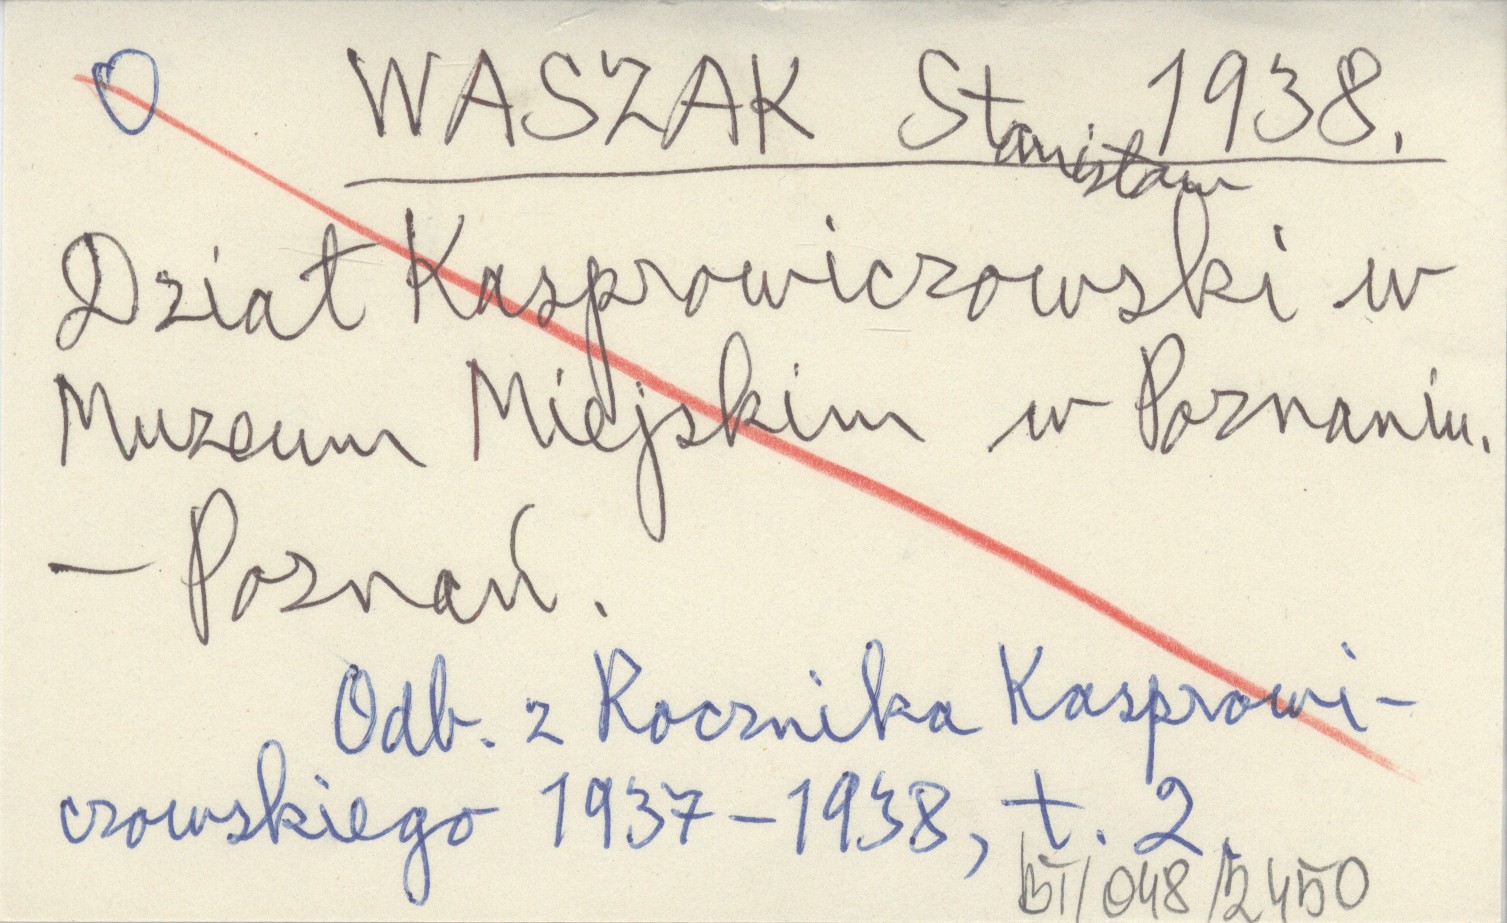 O WASZAK Stanisław 1938.
Dział Kasprowiczowski w
Muzeum Miejskim w Poznaniu.
— Poznań.
Odb. z Rocznika Kasprowi-
czowskiego 1937–1938, t. 2.
BT/048/2450